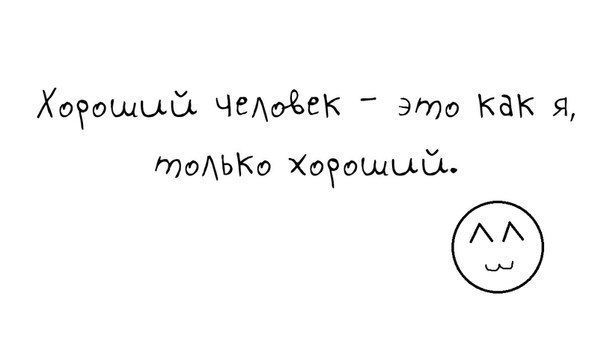 Хороший человек - это как я,
только хороший.